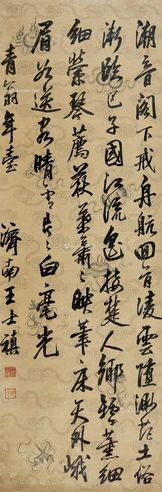 潮音閣下戒舟航回首凌雲渺茫土俗
漸踰巴子國江流接楚人鄉鑪薰細
細縈琴薦荻葉蕭蕭映筆床天外峨
眉如送客晴白毫光
青翁年臺
濟南王士禛